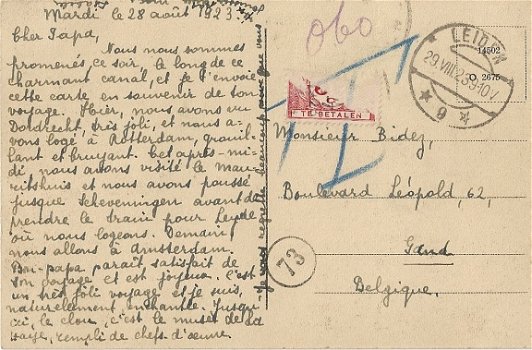 Mardi le 28 août 1923.
Cher Papa,
Nous nous sommes
promenés, ce soir, le long de ce
charmant canal, et je t'envoie
cette carte en souvenir de ton
voyage. Hier, nous avons vu
Dordrecht, très joli, et nous a-
vons logé à Rotterdam, grouil-
lant et bruyant. Cet après-mi-
di nous avons visité le Mau-
ritshuis et nous avons poussé
jusque Scheveningen avant de
prendre le train pour Leyde
où nous logeons. Demain
nous allons à Amsterdam.
Bon-papa paraît satisfait de
son voyage et est joyeux. C'est
un très joli voyage et je suis,
naturellement, enchanté. Jusqu'
ici, le clou, c'est le musée de La
Haye, rempli de chefs d'œuvre
je vous regrette beaucoup
060
TE BETALEN
LEIDEN
29.VIII.23
9
14502
O. 2675
Monsieur Bidez,
Boulevard Léopold, 62,
Gand
Belgique.
73